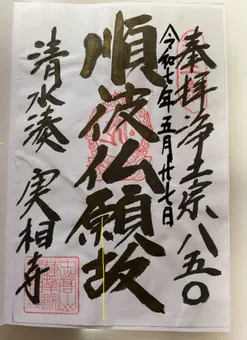 奉拝
浄土宗八五〇
令和七年五月廿七日
順彼仏願故
清水湊
実相寺